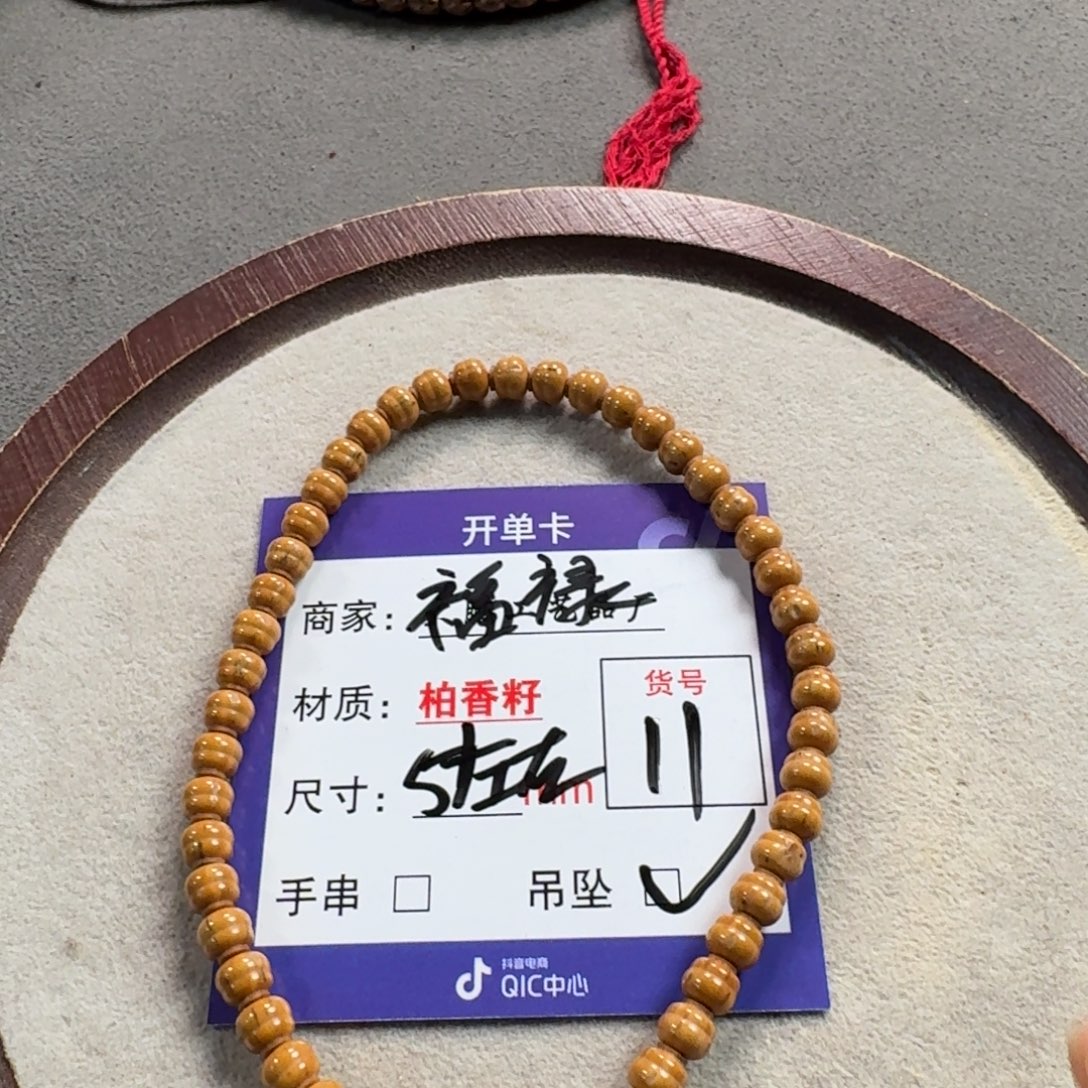 开单卡
商家：福禄
材质：柏香籽
货号
11
尺寸：5左右mm
手串 □
吊坠 ☑
抖音电商
QIC中心